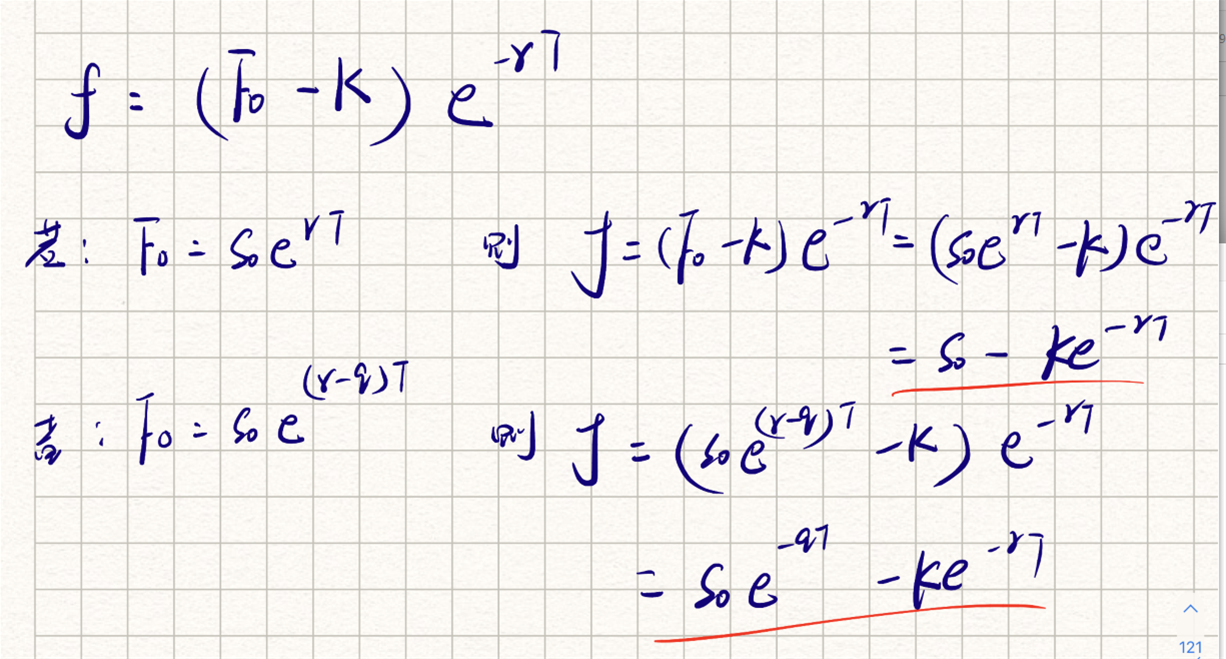 f = (F₀ - K) e^{-rT}
若: F₀ = S₀e^{rT} 则 f = (F₀ - K) e^{-rT} = (S₀e^{rT} - K) e^{-rT}
= S₀ - Ke^{-rT}
若: F₀ = S₀ e^{(r-q)T} 则 f = (S₀e^{(r-q)T} - K) e^{-rT}
= S₀ e^{-qT} - Ke^{-rT}
121